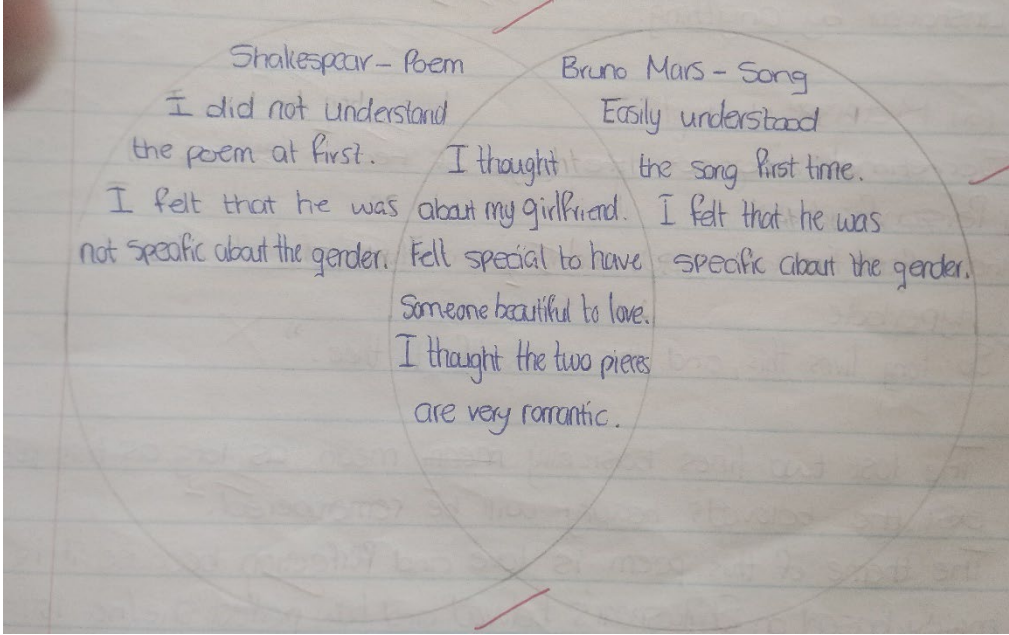 Shakespear - Poem
I did not understand
the poem at first.
I felt that he was
not specific about the gender.
I thought
about my girlfriend.
Felt special to have
someone beautiful to love.
I thought the two pieces
are very romantic.
Bruno Mars - Song
Easily understood
the song first time.
I felt that he was
specific about the gender.